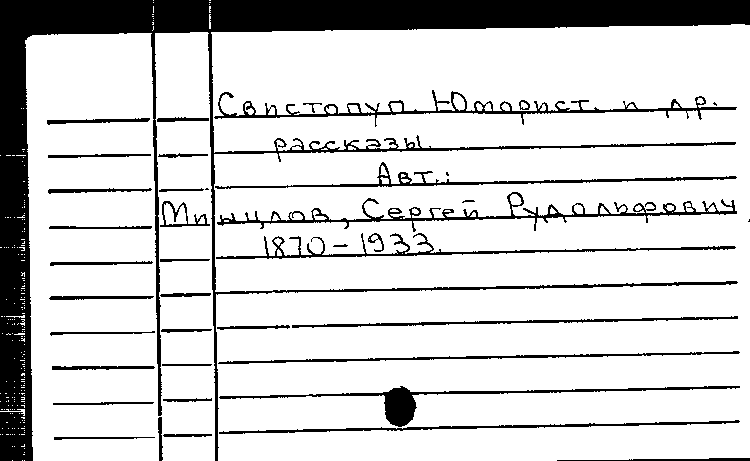 Свистопуп. Юморист. и др.
рассказы.
Авт.:
Минцлов, Сергей Рудольфович,
1870-1933.